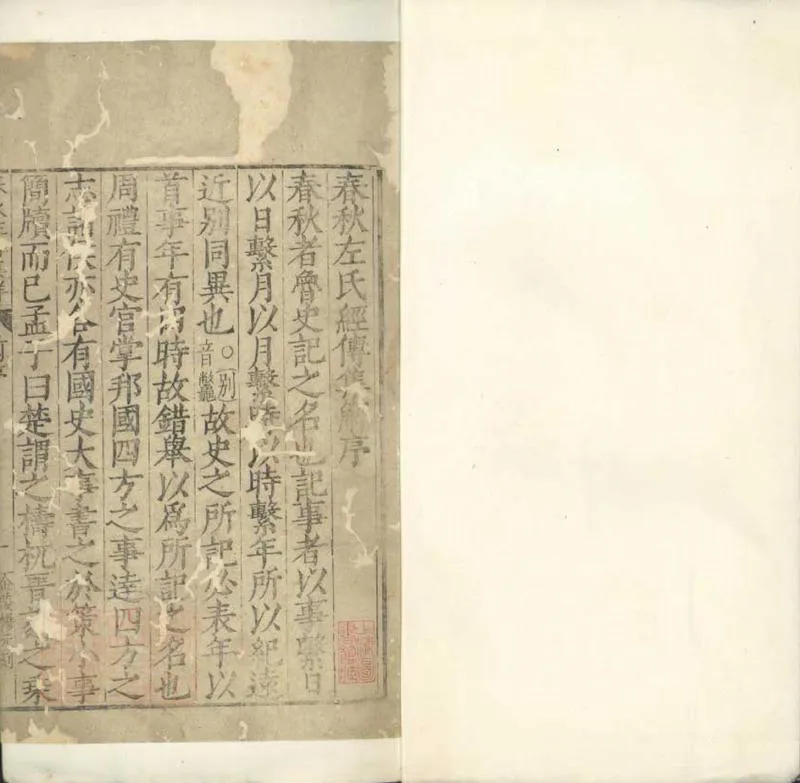 春秋左氏經傳集解序
春秋者魯史記之名也記事者以事繫日
以日繫月以月繫時以時繫年所以紀遠
近別同異也○別音鼈故史之所記必表年以
首事年有四時故錯舉以爲所記之名也
周禮有史官掌邦國四方之事逹四方之
志諸侯亦各有國史大事書之於策小事
簡牘而已孟子曰楚謂之檮杌晉之乘